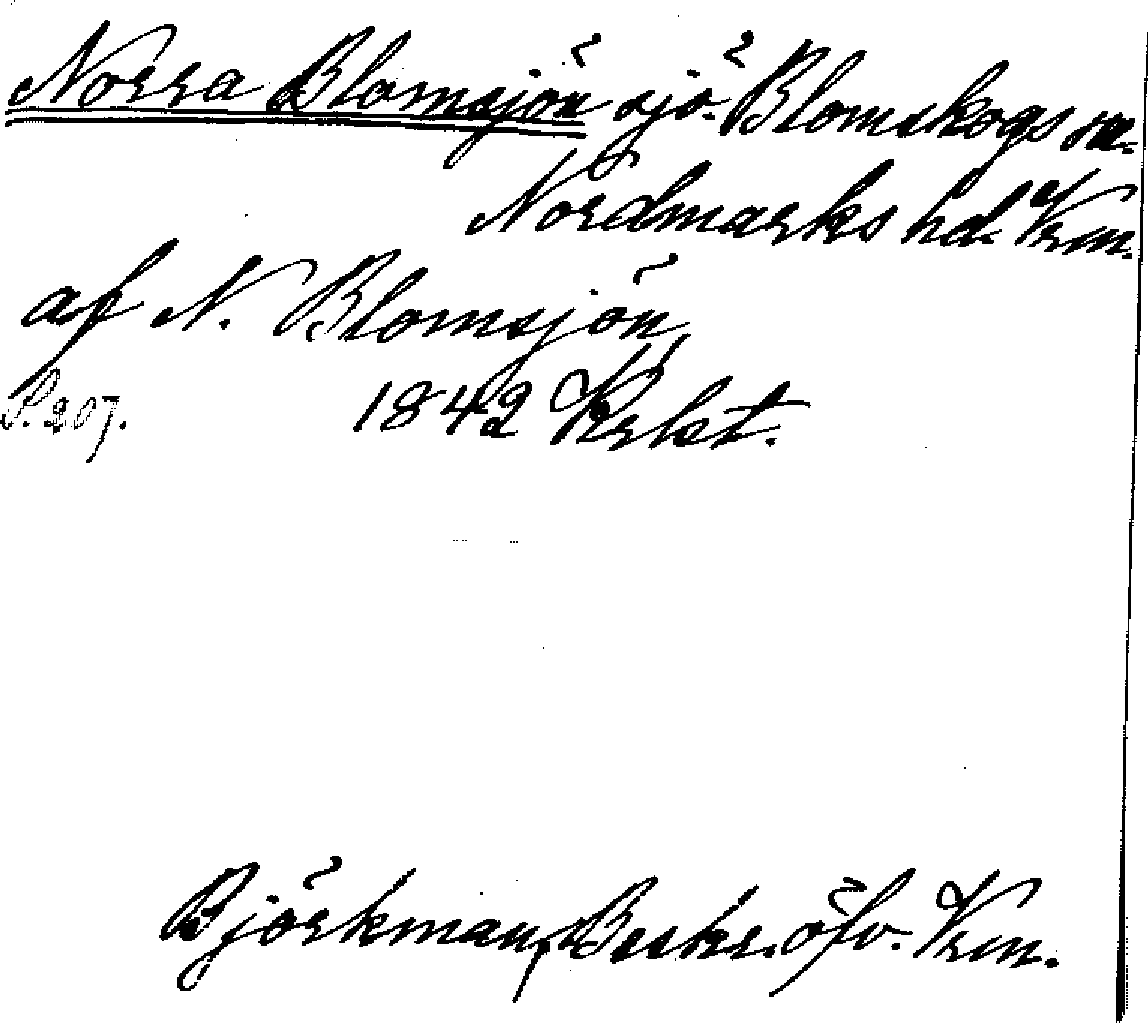 Norra Blomsjön sjö. Blomskogs sn.
Nordmarks hd. Vrm.
af N. Blomsjön
S. 207. 1842 Krlst.
Björkman, Beskr. öfv. Vrm.